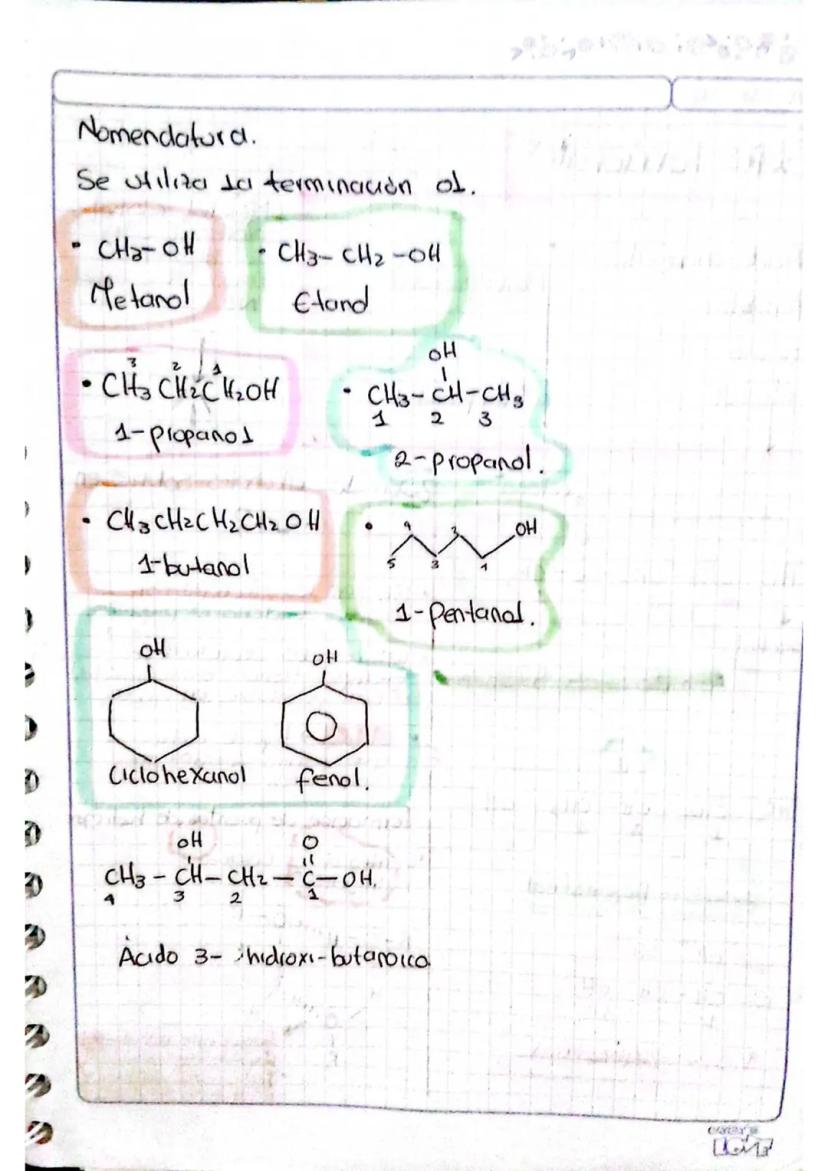 Nomenclatura.
Se utiliza la terminación ol.
• CH3-OH
Metanol
• CH3-CH2-OH
Etanol
3 2 1
• CH3CH2CH2OH
1-propanol
OH
• CH3-CH-CH3
1 2 3
2-propanol.
• CH3CH2CH2CH2OH
1-butanol
• OH
5 4 3 2 1
1-Pentanol.
OH
Ciclohexanol
OH
fenol.
OH O
CH3-CH-CH2-C-OH.
4 3 2 1
Ácido 3-hidroxi-butanoico
LOVE